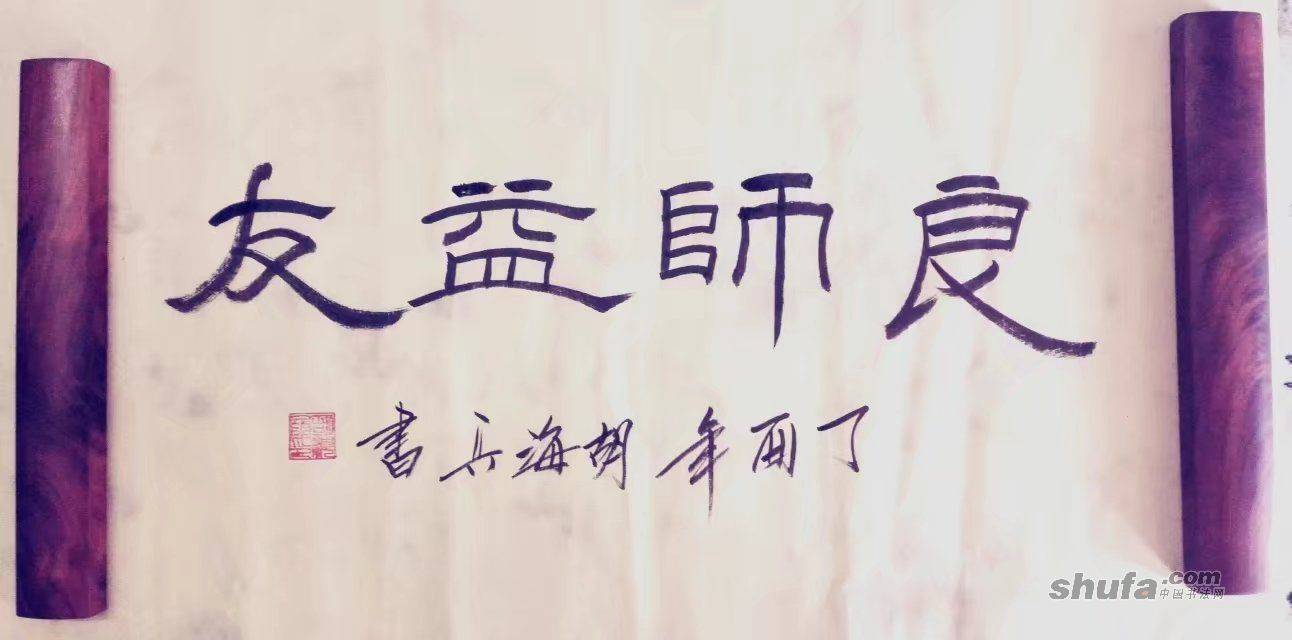 良師益友
丁酉年 胡海兵書
shufa.com
中国书法网